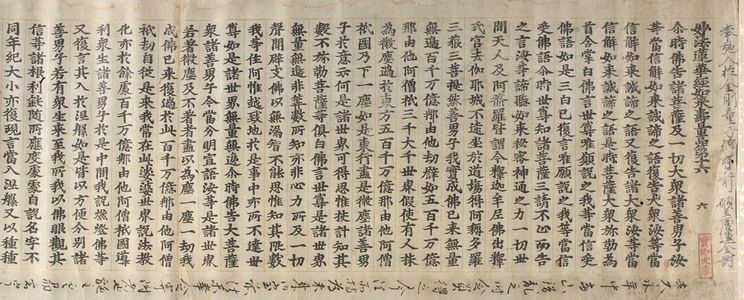 奉施入於金剛童子
妙法蓮華經如來壽量品第十六　六
尒時佛告諸菩薩及一切大衆諸善男子汝
等當信解如來誠諦之語復告大衆汝等當
信解如來誠諦之語又復告諸大衆汝等當
信解如來誠諦之語是時菩薩大衆弥勒為
首合掌白佛言世尊唯願說之我等當信受
佛語如是三白已復言唯願說之我等當信
受佛語尒時世尊知諸菩薩三請不止而告
之言汝等諦聽如來秘密神通之力一切世
間天人及阿脩羅皆謂今釋迦牟尼佛出釋
氏宮去伽耶城不遠坐於道場得阿耨多羅
三藐三菩提然善男子我實成佛已來無量
無邊百千万億那由他劫譬如五百千万億
那由他阿僧祇三千大千世界假使有人抹
為微塵過於東方五百千万億那由他阿僧
祇國乃下一塵如是東行盡是微塵諸善男
子於意云何是諸世界可得思惟挍計知其
數不弥勒菩薩等俱白佛言世尊是諸世界
無量無邊非筭數所知亦非心力所及一切
聲聞辟支佛以無漏智不能思惟知其限數
我等住阿惟越致地於是事中亦所不達世
尊如是諸世界無量無邊尒時佛告大菩薩
衆諸善男子今當分明宣語汝等是諸世界
若著微塵及不著者盡以為塵一塵一劫我
成佛已來復過於此百千万億那由他阿僧
祇劫自從是來我常在此娑婆世界說法教
化亦於餘處百千万億那由他阿僧祇國導
利衆生諸善男子於是中間我說燃燈佛等
又復言其入於涅槃如是皆以方便分別諸
善男子若有衆生來至我所我以佛眼觀其
信等諸根利鈍隨所應度處處自說名字不
同年紀大小亦復現言當入涅槃又以種種